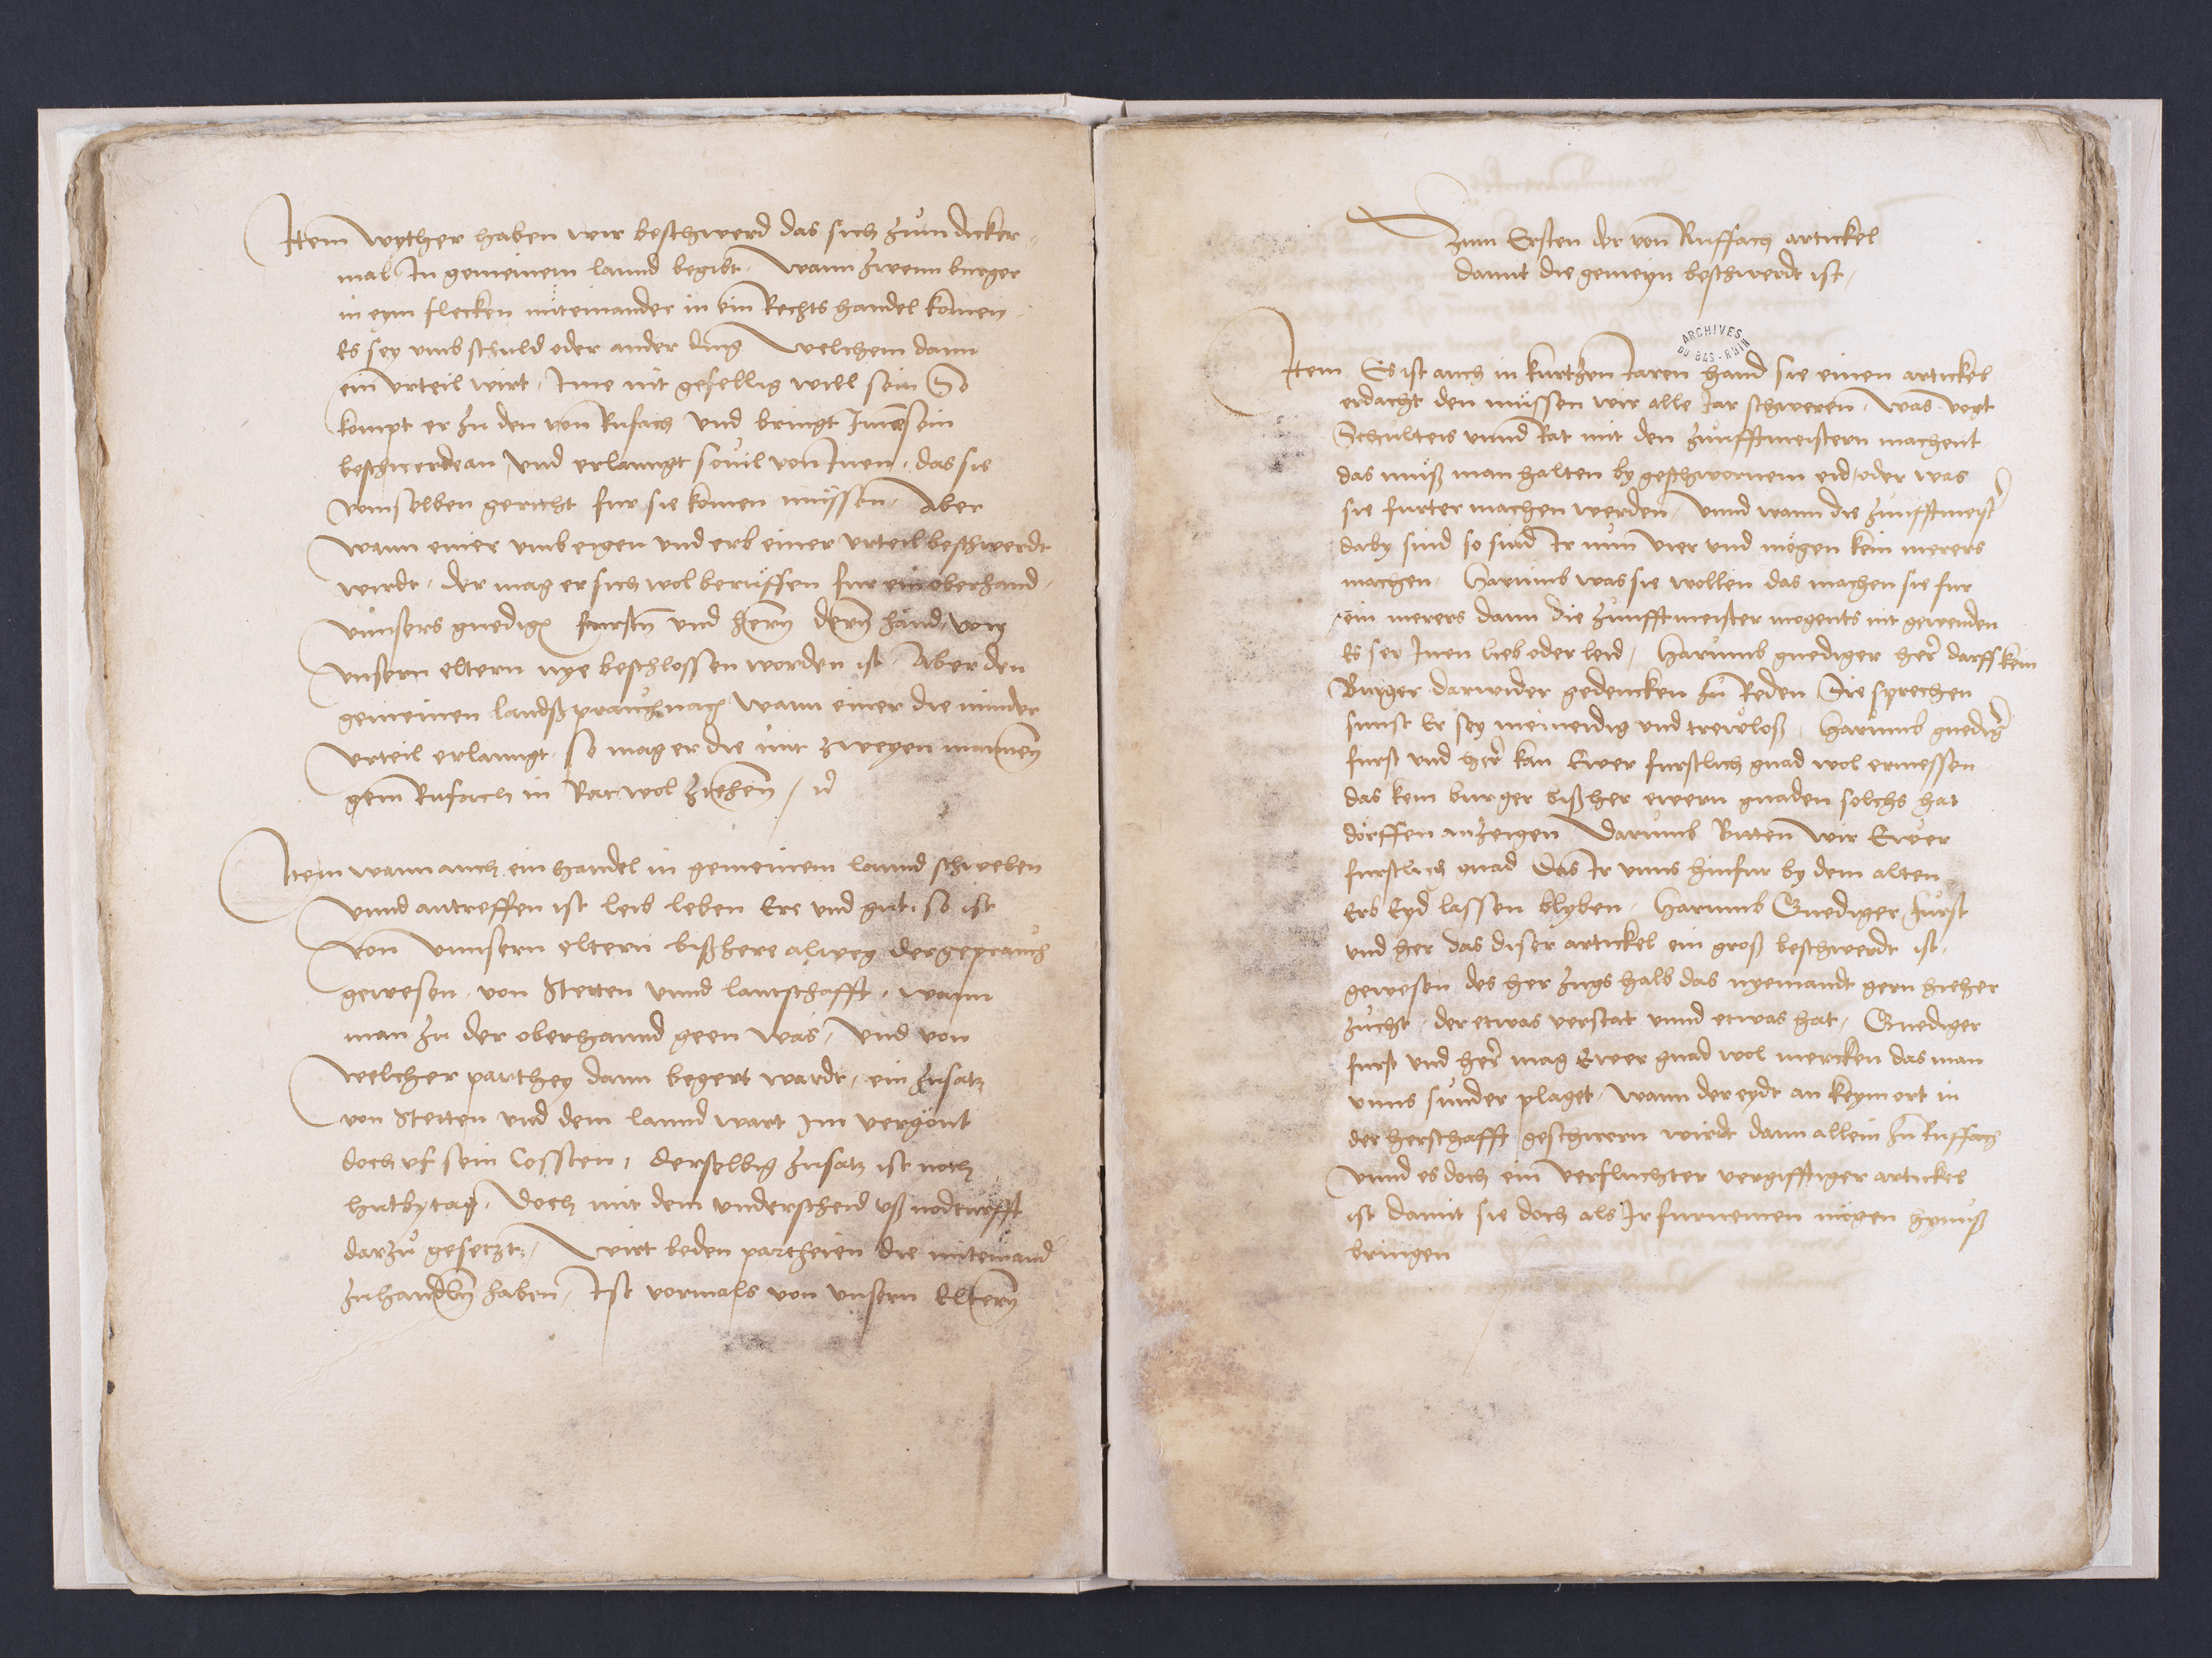 Item wyther haben wir beschwerd das sich zum dicker
mal In gemeinem lannd begibt. Wann zwenn burger
in eym flecken miteinander in ein Rechts handel komen
Es sey umb schuld oder ander ding Welchem dann
ein urteil wirt, Ime nit gefellig will sein So
kompt er zu den von Rufach und bringt Inen sein
beschwerde an, und erlanngt sovil von Inen, das sie
vom selben gericht fur sie komen mussen, Aber
wann einer umb eigen und erb einer urteil beschwerdt
wirdt, der mag er sich wol beruffen fur ein oberhand
unnsers gnedigen fursten und hern dern hand, von
unsern eltern nye beschlossen worden ist, Aber den
gemeinen landß prauch nach wann einer die minder
urteil erlanngt, so mag er die mit zweyen mannen
gein Rufach in Rat wol ziehen,
Item wann auch ein handel in gemeinem lannd schweben
unnd antreffen ist leib leben Ere und gut, so ist
von unnsern eltern bißhere alweg der geprauch
gewesen, von Stetten unnd lantschafft, wann
man zu der oberhannd geen was, und von
welcher parthey dann begert wardt, ein zusatz
von Stetten und dem lannd wart Im vergönt
doch uf sein Cossten, derselbig zusatz ist noch
hutbytag, Doch mit dem underscheid uß nodturfft
darzu gesetzt, Wirt beden partheien die miteinand
zuhandeln haben, Ist vormals von unsern Eltern
Zum Ersten der von Ruffach artickel
damit die gemeyn beschwerdt ist,
ARCHIVES
DU BAS-RHIN
Item Es ist auch in kurtzen Jaren hand sie einen artickel
erdacht den müssen wir alle Jar schweren, was vogt
Schulteis unnd Rat mit den zunfftmeistern machent
das muß man halten by geschwornem eid, oder was
sie furter machen werden, unnd wann die zunfftmeister
daby sind so sind Ir nun vier und mögen kein merers
machen, Harumb was sie wollen das machen sie fur
ein merers dann die zunfftmeister mogents nit gewenden
Es sey Inen lieb oder leid, Harumb gnediger her darff kein
Burger darwider gedencken zu Reden Sie sprechen
sunst Er sey meineidig und trewloß, Harumb gnediger
furst und her kan Ewer furstlich gnad wol ermessen
das kein burger bißher ewern gnaden solchs hat
dörffen anzeigen Darumb Bitten wir Ewer
furstlich gnad Das Ir unns hinfur by dem alten
Erb Eyd lassen blyben, Harumb Gnediger furst
und her das diser artickel ein groß beschwerdt ist,
gewesen des her zugs halb das nyemandt gern hieher
zucht, der etwas verstat unnd etwas hat, Gnediger
furst und her mag Ewer gnad wol mercken das man
unns sunder plaget, wann der eydt an keym ort in
der herschafft geschwern wirdt dann allein zu Ruffach
unnd es doch ein verfluchter vergifftiger artickel
ist damit sie doch als Ir furnemen mögen hynuß
bringen